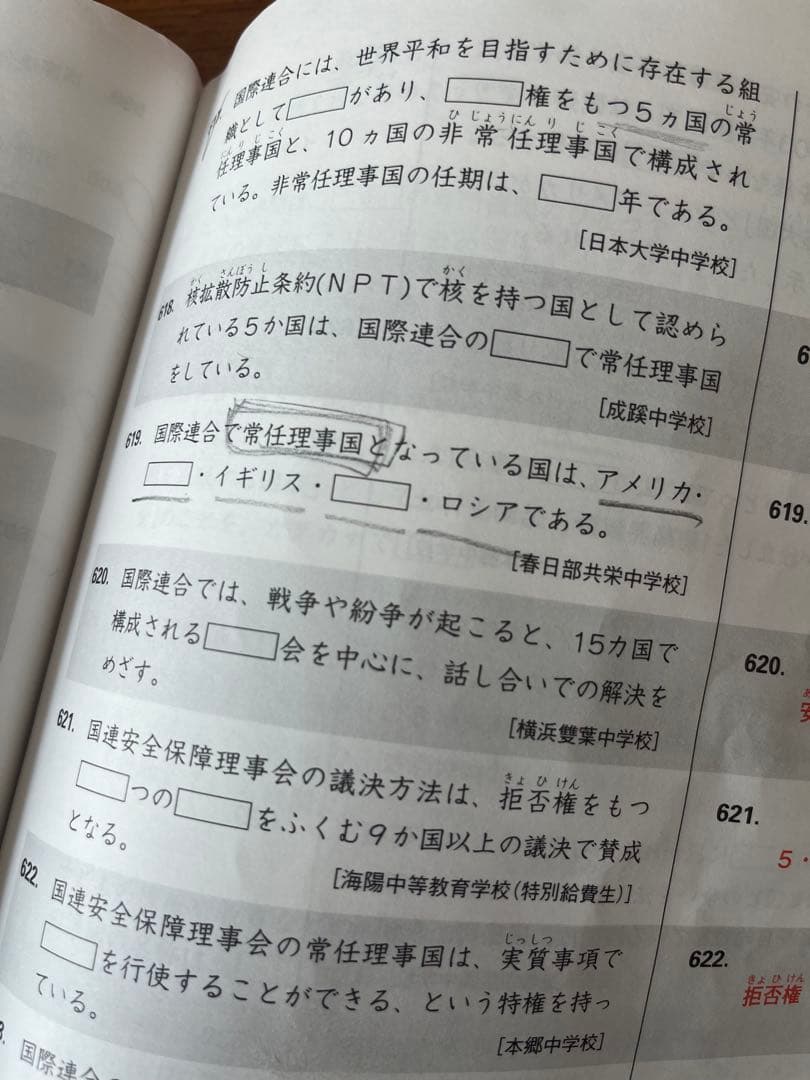 国際連合には、世界平和を目指すために存在する組
織として□があり、□権をもつ5ヵ国の常
任理事国と、10ヵ国の非常任理事国で構成され
ている。非常任理事国の任期は、□年である。
[日本大学中学校]
618. 核拡散防止条約(NPT)で核を持つ国として認めら
れている5か国は、国際連合の□で常任理事国
をしている。
[成蹊中学校]
619. 国際連合で常任理事国となっている国は、アメリカ・
□・イギリス・□・ロシアである。
[春日部共栄中学校]
620. 国際連合では、戦争や紛争が起こると、15カ国で
構成される□会を中心に、話し合いでの解決を
めざす。
[横浜雙葉中学校]
621. 国連安全保障理事会の議決方法は、拒否権をもつ
□つの□をふくむ9か国以上の議決で賛成
となる。
[海陽中等教育学校(特別給費生)]
622. 国連安全保障理事会の常任理事国は、実質事項で
□を行使することができる、という特権を持っ
ている。
[本郷中学校]
国際連合
619.
620.
安
621.
5・
622.
拒否権